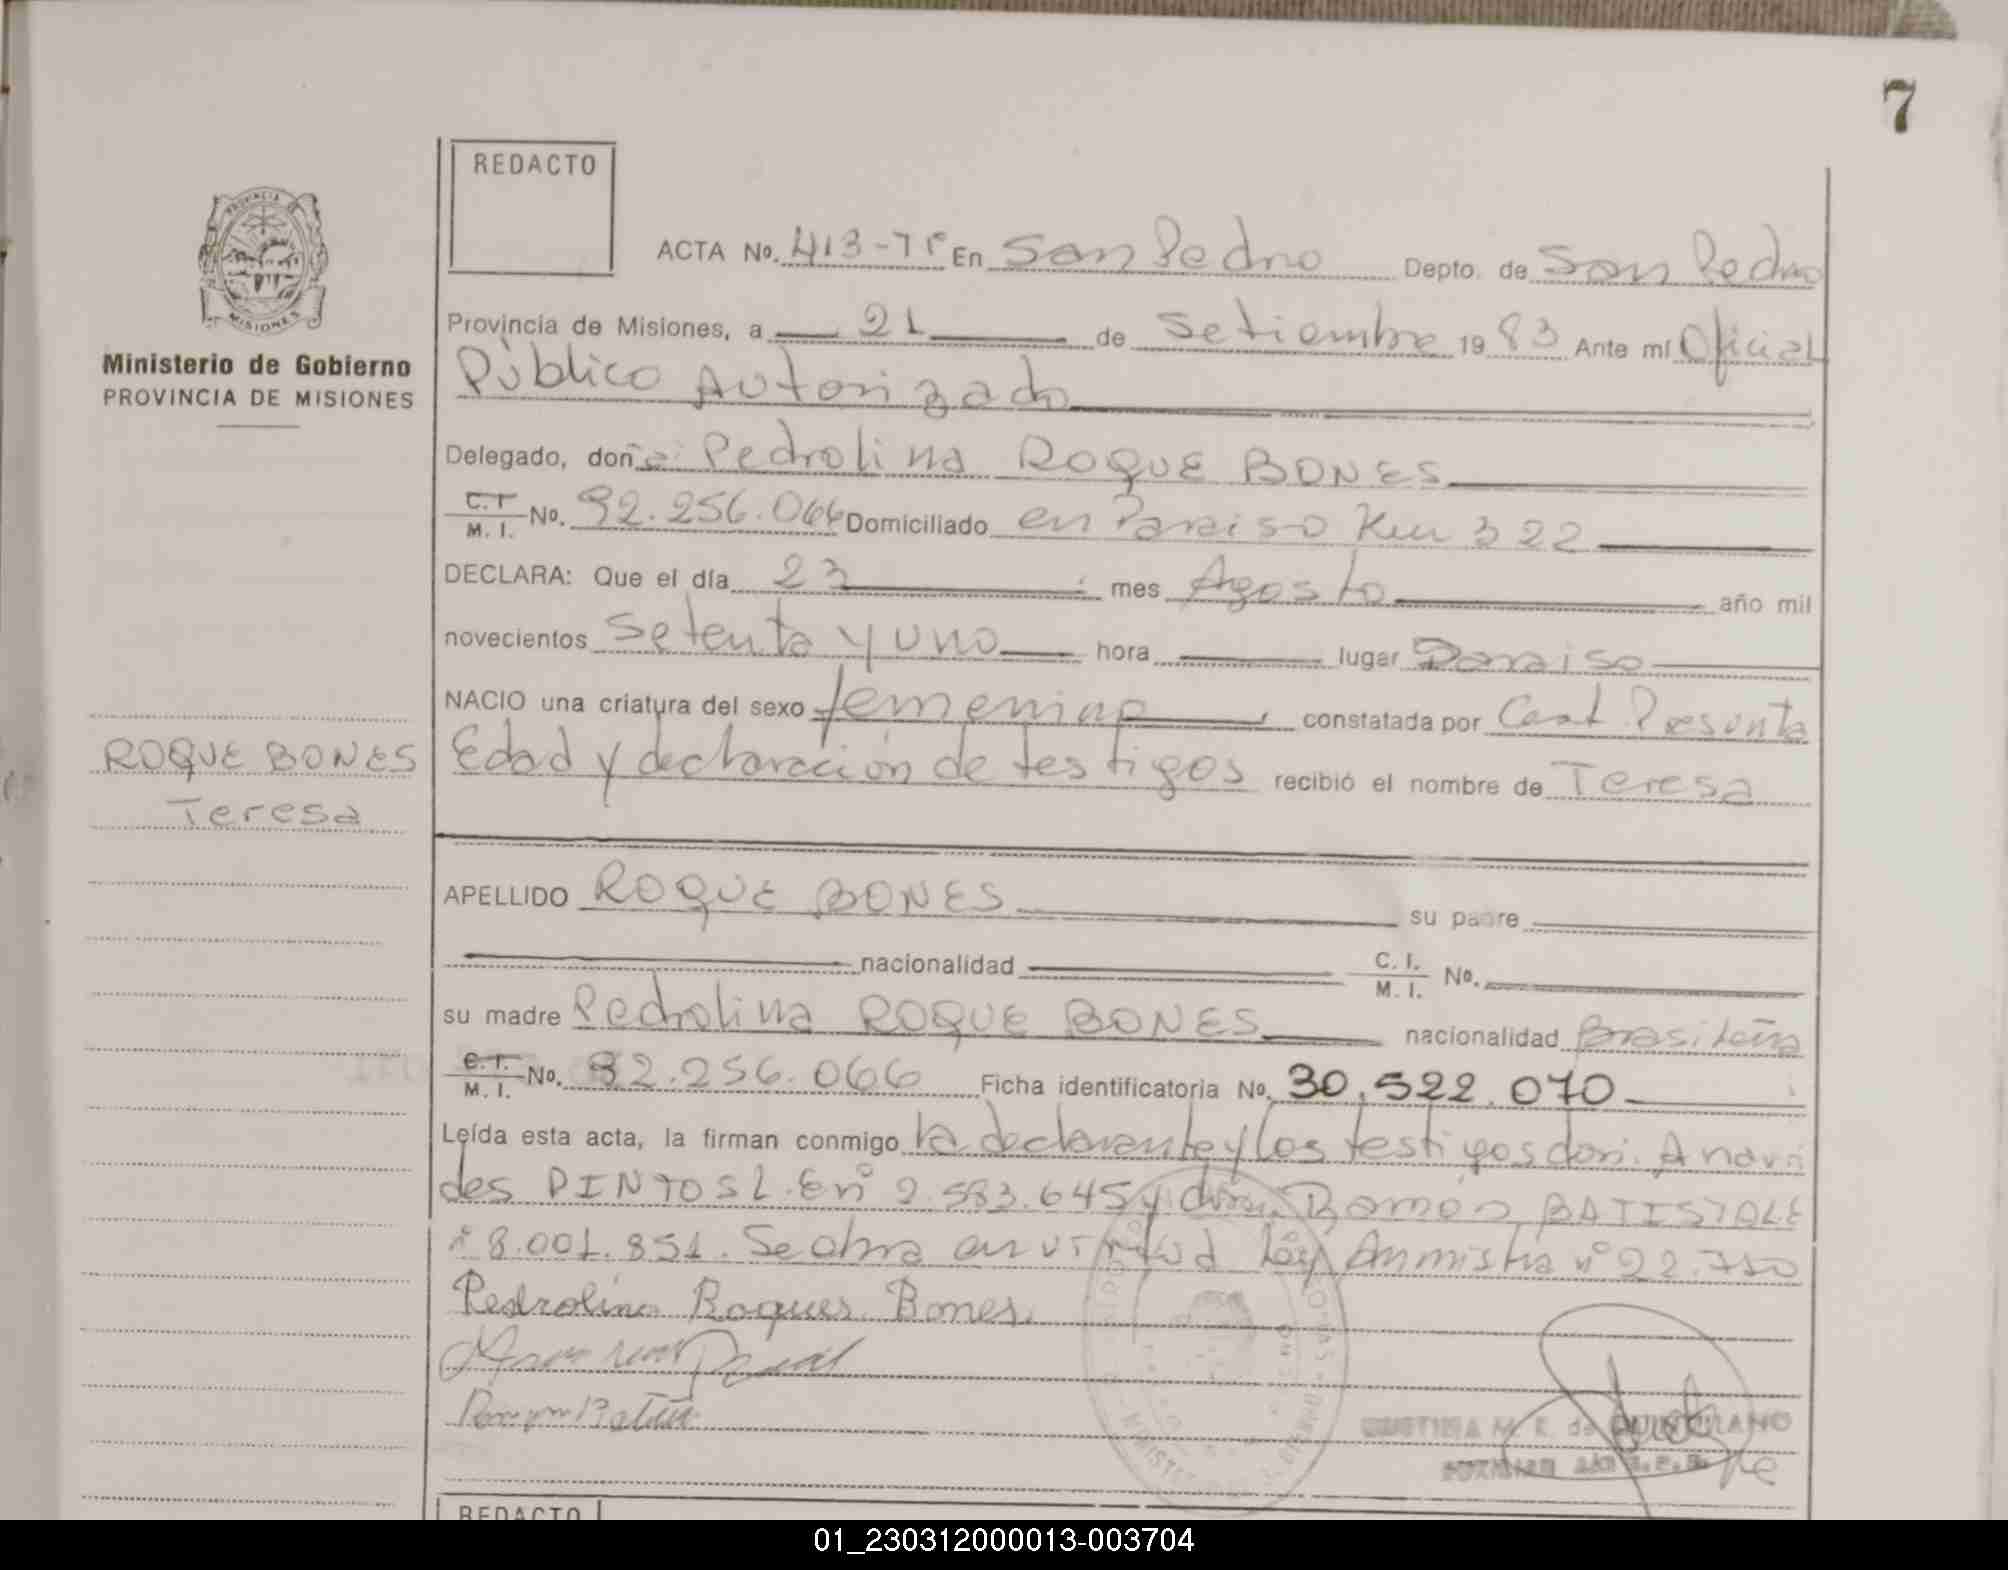 7
REDACTO
ACTA No. 413-Tº En San Pedro Depto. de San Pedro
PROVINCIA DE
MISIONES
Ministerio de Gobierno
PROVINCIA DE MISIONES
Provincia de Misiones, a 21 de Setiembre 1983 Ante mí Oficial
Público Autorizado
Delegado, doña Pedrolina ROQUE BONES
C.I. M.I. No. 92.256.066 Domiciliado en Paraiso Km 322
DECLARA: Que el día 23 mes Agosto año mil
novecientos setenta y uno hora lugar Paraiso
NACIO una criatura del sexo femenino constatada por Cert. Presunta
ROQUE BONES
Teresa
Edad y declaración de testigos recibió el nombre de Teresa
APELLIDO ROQUE BONES su padre
nacionalidad C.I. M.I. No.
su madre Pedrolina ROQUE BONES nacionalidad Brasileña
C.I. M.I. No. 92.256.066 Ficha identificatoria No. 30.522.070
Leída esta acta, la firman conmigo la declarante y los testigos don:
des PINTOS L.E nº 2 583.645 y don: Ramón BATISTA LE
nº 8.001.851. Se obra en virtud Ley Anmistia nº 22.
Pedrolina Roques Bones
M. E. de QUINTILIANO
REDACTO
01_230312000013-003704